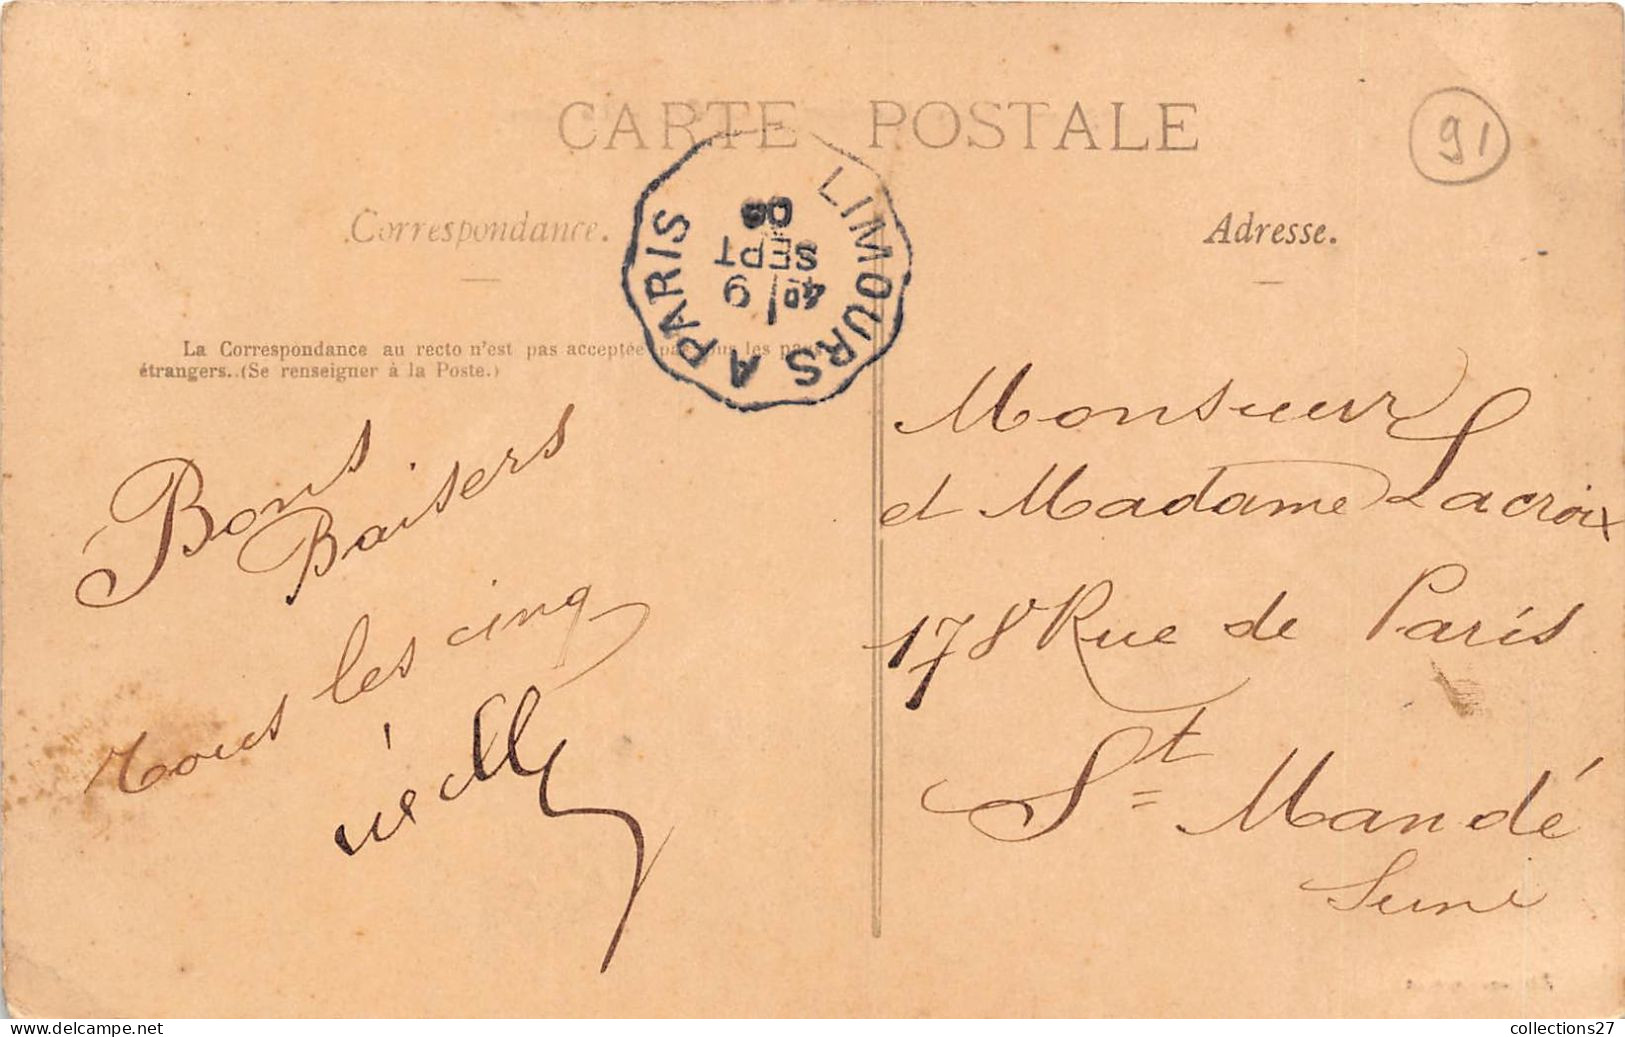 CARTE POSTALE
91
Correspondance.
Adresse.
LIMOURS A PARIS
9
SEPT
06
La Correspondance au recto n'est pas acceptée par tous les pays
étrangers. (Se renseigner à la Poste.)
Bons
Baisers
Tous les cinq
Monsieur
et Madame Lacroix
178 Rue de Paris
St Mandé
Seine
collections27